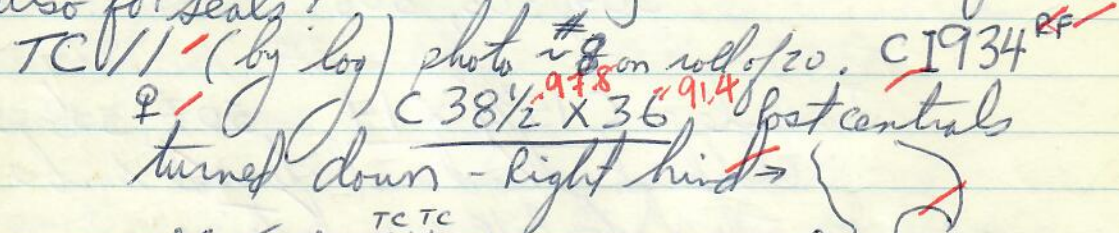 also for seals!
TC // (by log) photo ~#8 on roll of 20. CI934 RF
♀ C 38½" 97.8 X 36" 91.4 Post centrals
turned down - Right hind →
TC TC